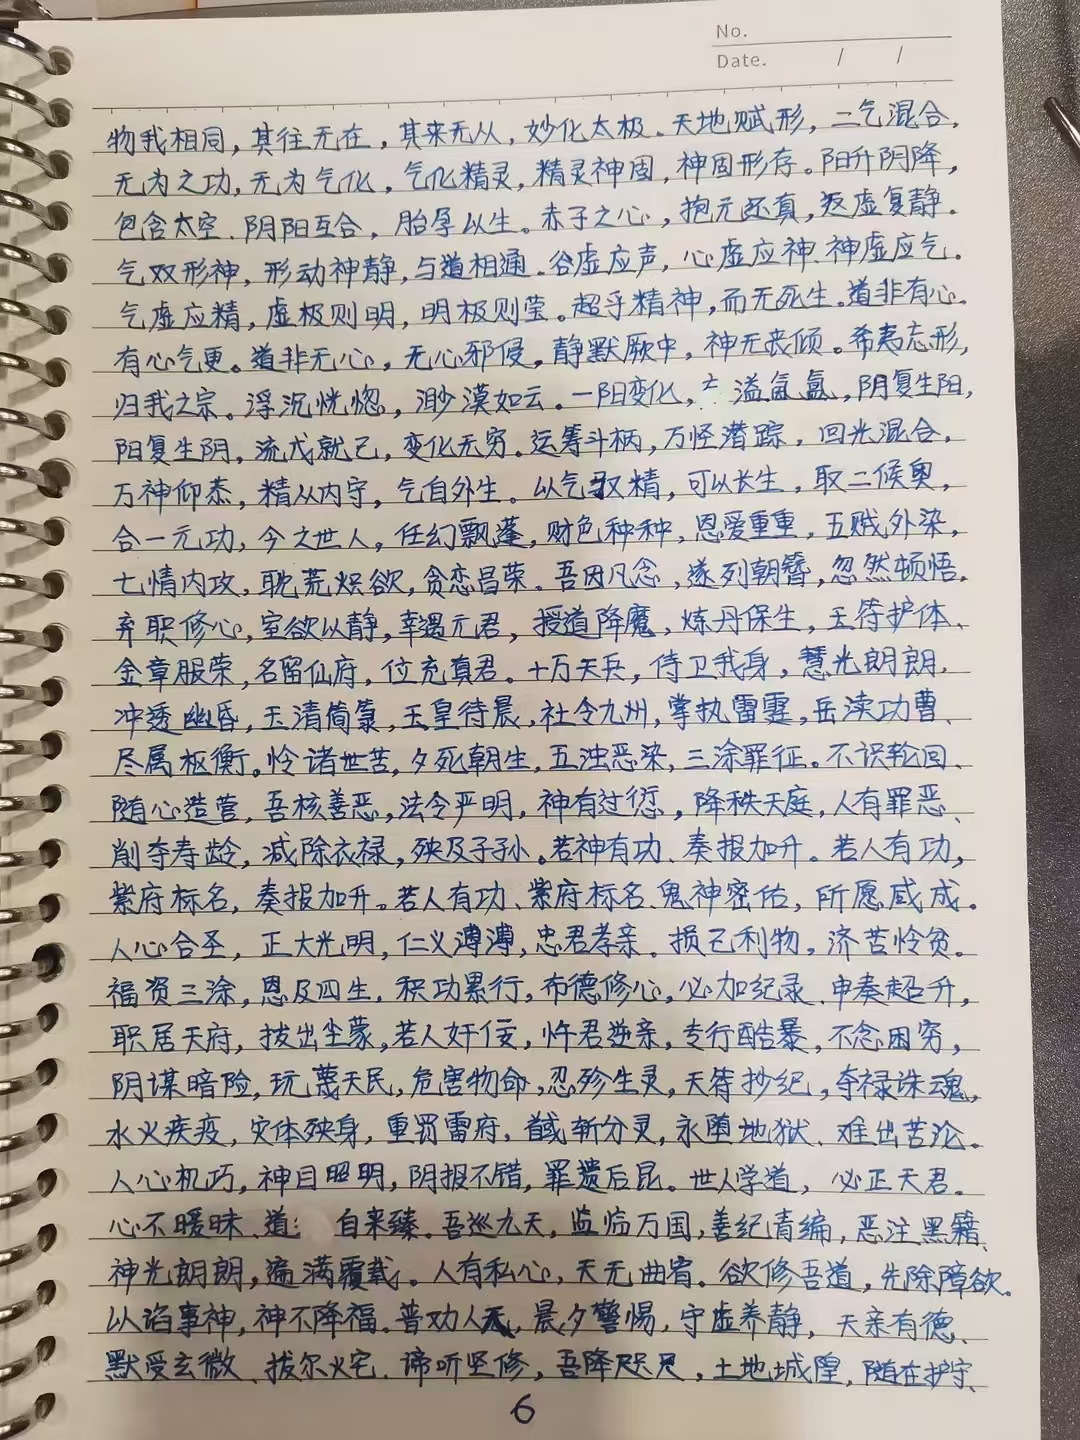 No.
Date. / /
物我相同，其往无在，其来无从，妙化太极、天地赋形，二气混合，
无为之功，无为气化，气化精灵，精灵神固，神固形存。阳升阴降，
包含太空、阴阳互合，胎孕以生。赤子之心，抱元还真，返虚复静。
气双形神，形动神静，与道相通、谷虚应声，心虚应神、神虚应气。
气虚应精，虚极则明，明极则莹。超乎精神，而无死生。道非有心。
有心气更。道非无心，无心邪侵，静默厥中，神无丧倾。希夷忘形，
归我之宗。浮沉恍惚，渺漠如云。一阳变化，六溢氤氲，阴复生阳，
阳复生阴，流戊就己，变化无穷。运筹斗柄，万怪潜踪，回光混合，
万神仰恭，精从内守，气自外生。以气取精，可以长生，取二候奥，
合一元功，今之世人，任幻飘蓬，财色种种，恩爱重重，五贼外染，
七情内攻，耽荒炽欲，贪恋昌荣、吾因凡念，遂列朝簪，忽然顿悟，
弃职修心，室欲以静，幸遇元君，授道降魔，炼丹保生，玉符护体、
金章服荣，名留仙府，位充真君。十万天兵，侍卫我身，慧光朗朗，
冲透幽昏，玉清简箓，玉皇待晨，社令九州，掌执雷霆，岳渎功曹、
尽属枢衡。怜诸世苦，夕死朝生，五浊恶染，三涂罪征。不误轮回、
随心造营，吾核善恶，法令严明，神有过愆，降秩天庭，人有罪恶、
削夺寿龄，减除衣禄，殃及子孙。若神有功、奏报加升。若人有功，
紫府标名，奏报加升。若人有功、紫府标名、鬼神密佑，所愿咸成。
人心合圣，正大光明，仁义溥溥，忠君孝亲、损己利物，济苦怜贫。
福资三涂，恩及四生，积功累行，布德修心，必加纪录、申奏超升，
职居天府，拔出尘蒙，若人奸佞，忤君逆亲，专行酷暴，不念困穷，
阴谋暗险，玩蔑天民，危害物命，忍殄生灵，天符抄纪，夺禄诛魂，
水火疾疫，灾体殃身，重罚雷府，馘斩分灵，永堕地狱、难出苦沦。
人心机巧，神目照明，阴报不错，罪遗后昆。世人学道，必正天君。
心不暖昧、道 自来臻、吾巡九天，监临万国，善纪青编，恶注黑籍、
神光朗朗，遍满覆载。人有私心，天无曲宥。欲修吾道，先除障欲。
以谄事神，神不降福。普劝人天，晨夕警惕，守虚养静，天亲有德、
默受玄微、拔尔火宅、谛听坚修，吾降咫尺，土地城隍，随在护守、
6